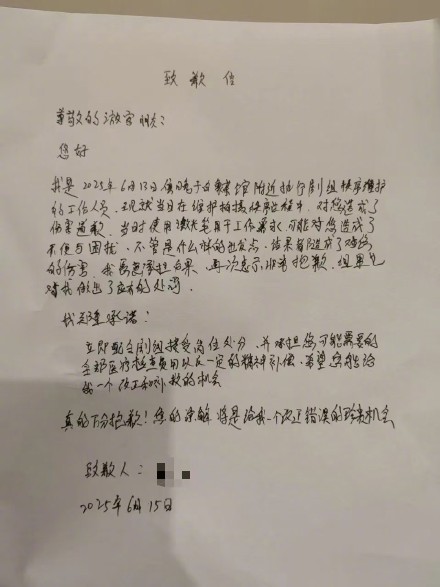 致歉信
尊敬的游客朋友:
您好
我是2025年6月13日值晚于白象馆附近执行剧组秩序维护
的工作人员，现就当日在维护拍摄秩序过程中，对您造成了
伤害道歉，当时使用激光笔用于工作需求，可能对您造成了
不便与困扰，不管是什么样的出发点，结果都造成了对您
的伤害，我愿意承担后果，再次表示非常抱歉，组里也
对我做出了应有的处罚
我郑重承诺:
立即配合剧组接受岗位处分，并承担您可能需要的
全部医疗检查费用以及一定的精神补偿，希望您能给
我一个改正和补救的机会
真的十分抱歉!您的谅解将是给我一个改正错误的珍贵机会
致歉人:
2025年6月15日